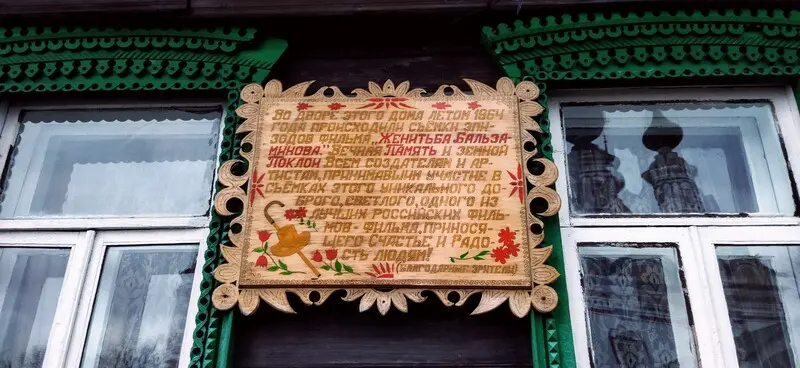 Во дворе этого дома летом 1964
года происходили съёмки эпи-
зодов фильма „Женитьба Бальза-
минова." Вечная Память и земной
Поклон Всем создателям и ар-
тистам, принимавшим участие в
съёмках этого уникального до-
брого, светлого, одного из
лучших Российских филь-
мов - фильма, принося-
щего Счастье и Радо-
сть людям!
(Благодарные зрители)